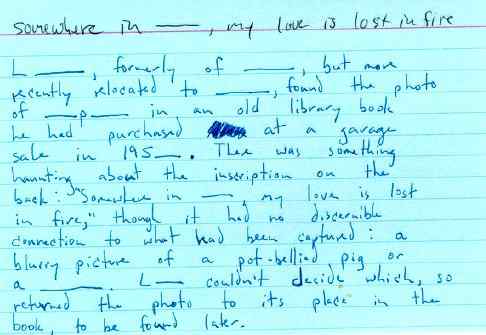 somewhere in ____, my love is lost in fire
L ____, formerly of ____, but more
recently relocated to ____, found the photo
of __p__ in an old library book
he had purchased at a garage
sale in 195__. There was something
haunting about the inscription on the
back: "Somewhere in ___, my love is lost
in fire," though it had no discernible
connection to what had been captured: a
blurry picture of a pot-bellied pig or
a ____. L___ couldn't decide which, so
returned the photo to its place in the
book, to be found later.